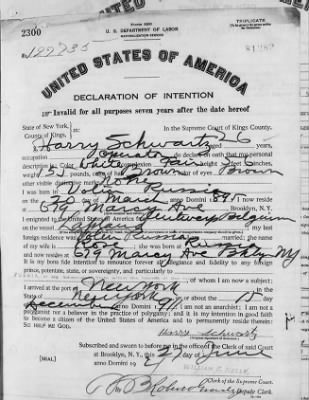 2300
U. S. DEPARTMENT OF LABOR
NATURALIZATION SERVICE
TRIPLICATE
No. 122735
UNITED STATES OF AMERICA
DECLARATION OF INTENTION
Invalid for all purposes seven years after the date hereof
State of New York,
County of Kings
In the Supreme Court of Kings County.
I, Harry Schwartz 26
occupation do declare on oath that my personal
description is: Color White complexion Fair height 5 feet 6 inches,
weight 153 pounds, color of hair Brown color of eyes Brown
other visible distinctive marks None
I was born in Russia
on the 20 day of March anno Domini 1891 now reside
at 679 Marcy Ave Brooklyn, N. Y.
I emigrated to the United States of America from Belgium
on the vessel my last
foreign residence was Russia married; the name
of my wife is Rose she was born at Russia
and now resides at 679 Marcy Ave Bklyn NY
It is my bona fide intention to renounce forever all allegiance and fidelity to any foreign
prince, potentate, state, or sovereignty, and particularly to
of whom I am now a subject;
arrived at the port of New York
New York on or about the 15 day
December anno Domini I am not an anarchist; I am not a
polygamist nor a believer in the practice of polygamy; and it is my intention in good faith
to become a citizen of the United States of America and to permanently reside therein:
SO HELP ME GOD.
Harry Schwartz
Subscribed and sworn to before me in the office of the Clerk of said Court
at Brooklyn, N. Y., this 27 day of June
anno Domini 19
[SEAL]
WILLIAM F. KELLY
Clerk of the Supreme Court.
By Deputy Clerk.